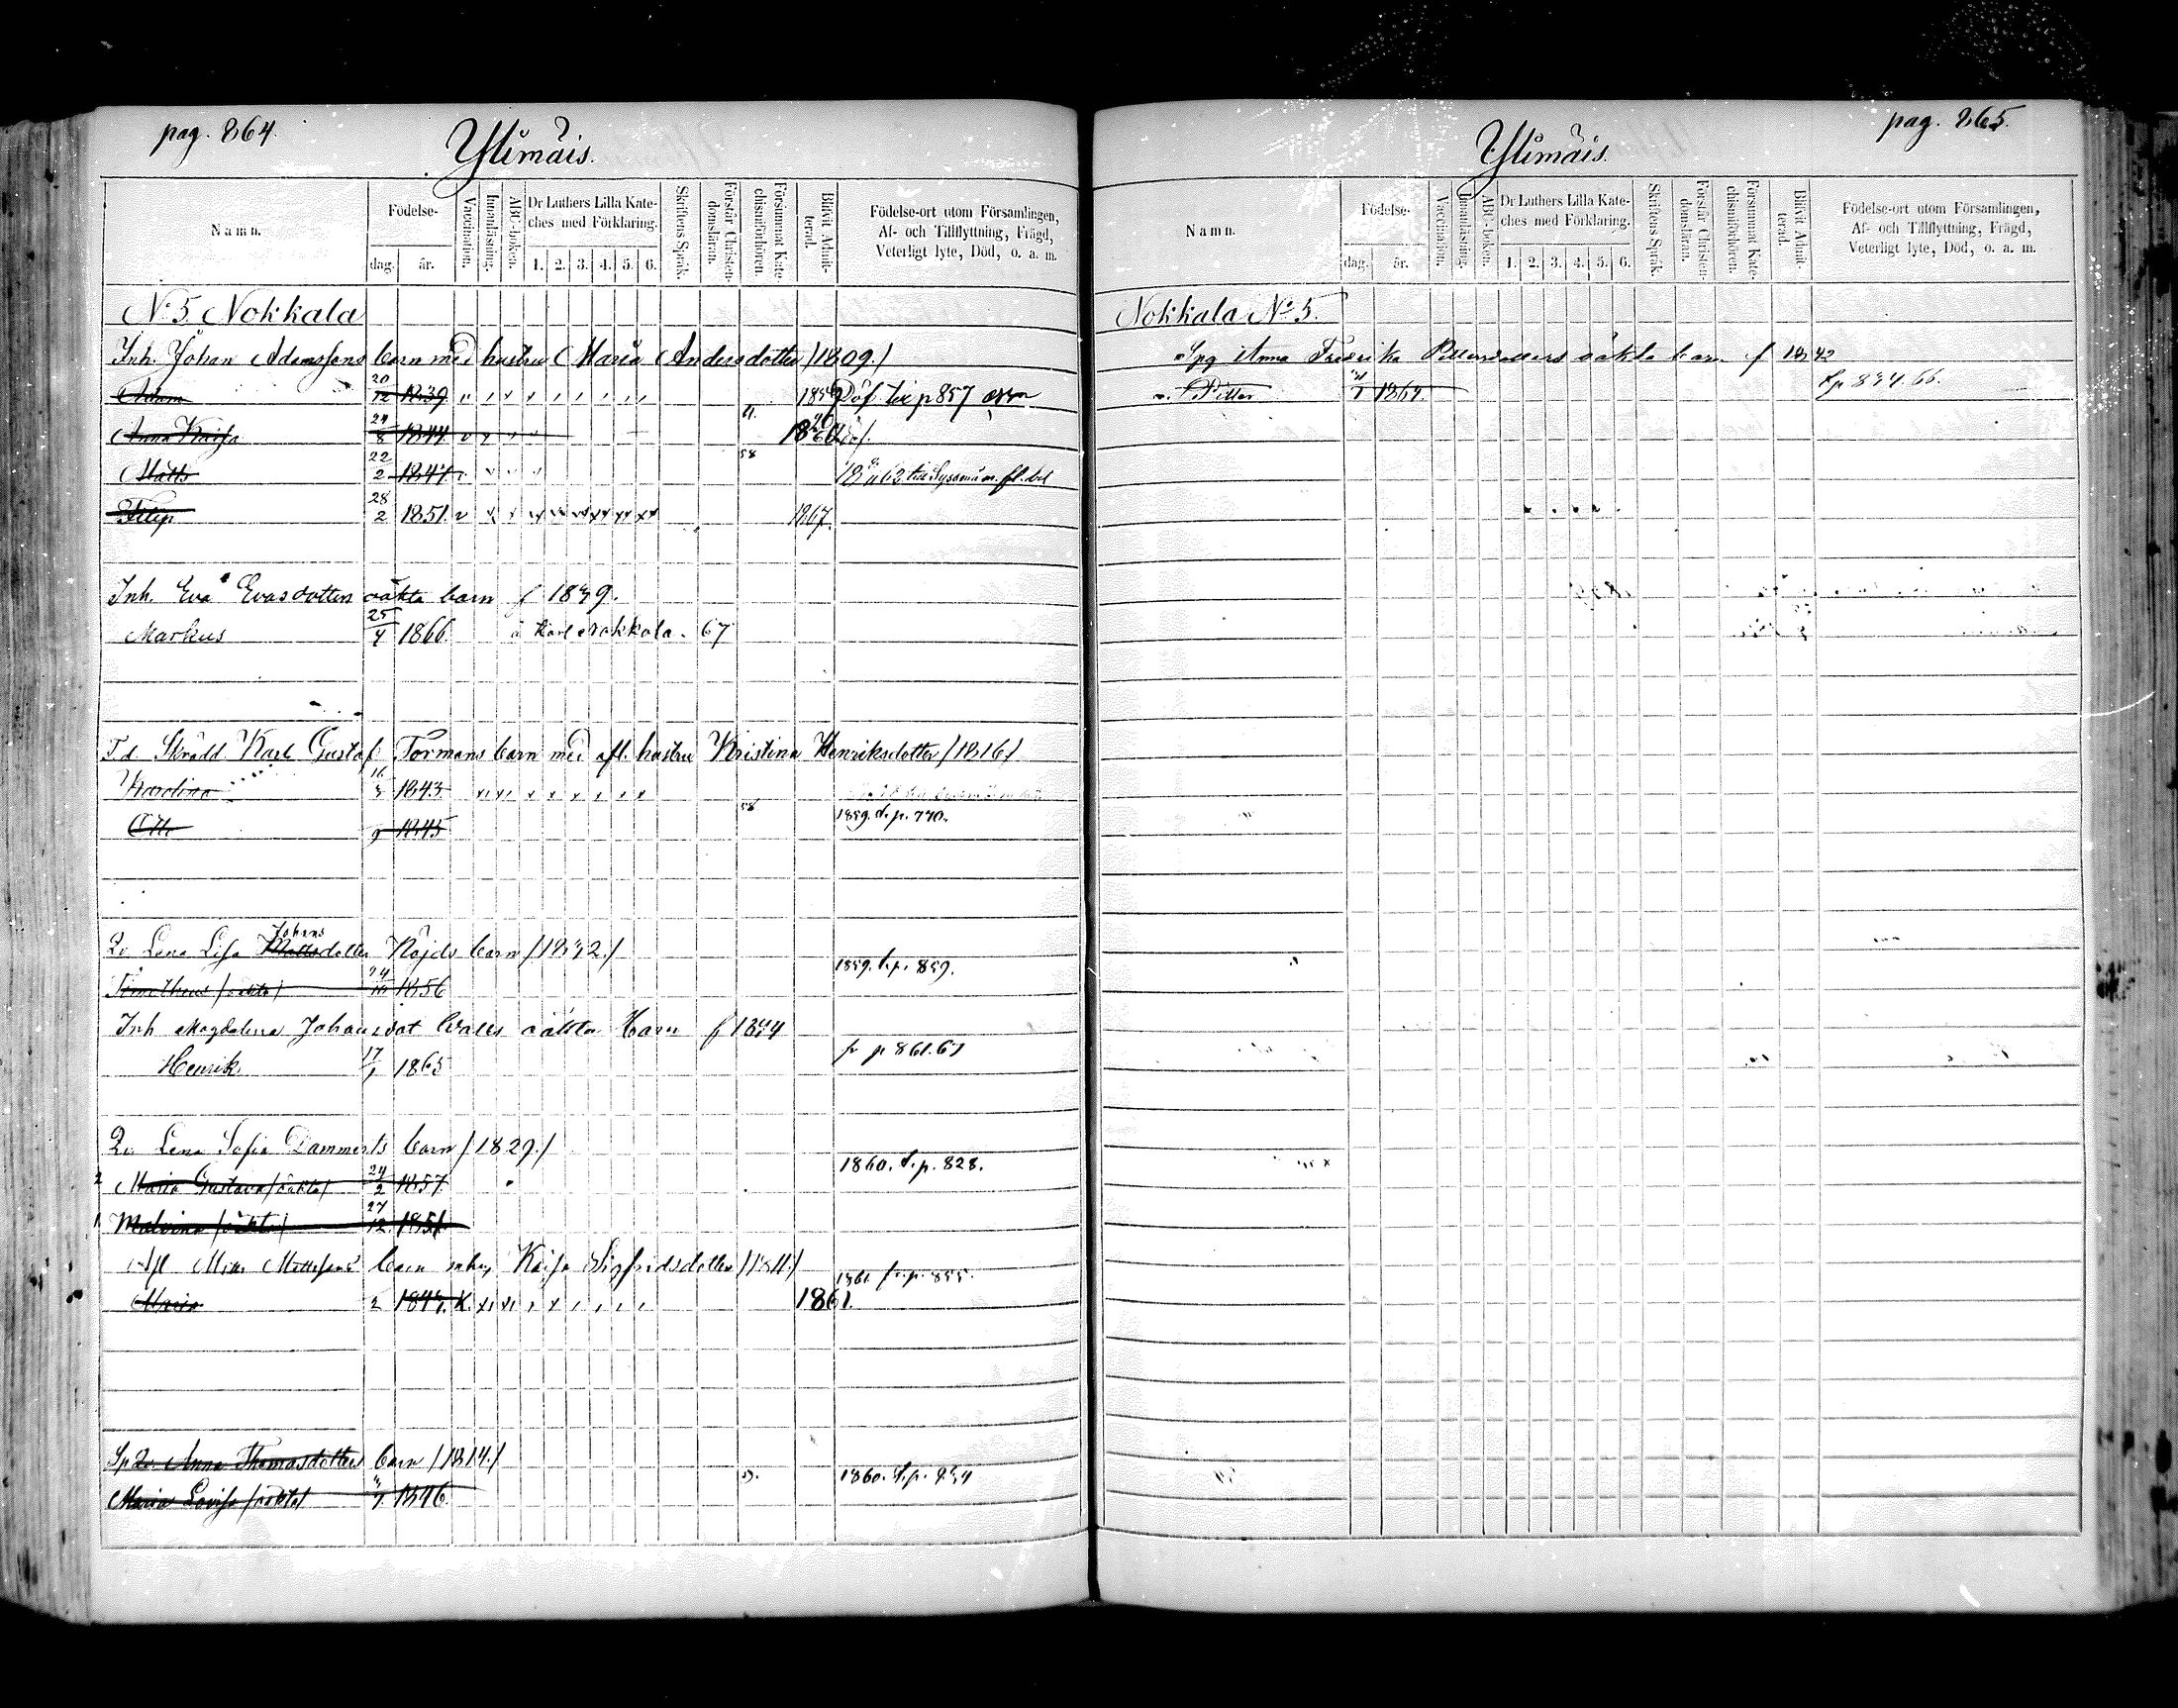 pag. 864.
Ylimäis.
Namn.
Födelse-
dag.
år.
Vaccination.
Innanläsning.
ABC-boken.
Dr Luthers Lilla Kate-
ches med Förklaring.
1. 2. 3. 4. 5. 6.
Skriftens Språk.
Förstår Christen-
domsläran.
Försummat Kate-
chismiförhören.
Blifvit Admit-
terad.
Födelse-ort utom Församlingen,
Af- och Tillflyttning, Frägd,
Veterligt lyte, Död, o. a. m.
No 5. Nokkala
Inh. Johan Adamssons barn med hustru Maria Andersdotter /1809./
Adam 20/12 1839
p 857
Anna Kaisa 24/8 1844 1860
Matts 22/2 1847
Filip 28/2 1851 1867.
Inh. Eva Evasdotters oäkta barn f 1839.
Markus 25/4 1866 Nokkala. 67
F.d Skrädd. Karl Gustaf Formans barn med afl. hustru Kristina Henriksdotter /1816/
Karolina 16/3 1843
Otto 9 1845 58 1859. d. p. 770.
Lena Lisa Mattsdotter Johans Nöjds barn /1832./
Timotheus /oäkta/ 24/10 1856 1859. d. p. 859.
Inh Magdalena Johansdot Walls oäkta Barn f 1844
Henrik 17/1 1865 fr p 861. 67
Lena Sofia Dammerts barn /1829./
2 Maria Gustava /oäkta/ 24/2 1857 1860. d. p. 828.
1. Malvina /oäkta/ 27/12 1851
Afl Matts Mattssons barn Kaisa Sigfridsdotter /1811/
Maria 2 1861. 1861 fr. p. 855.
Anna Thomasdotters barn /1814./
Maria Lovisa /oäkta/ 1846 1860. d. p. 834
pag. 865.
Ylimäis.
Namn.
Födelse-
dag.
år.
Vaccination.
Innanläsning.
ABC-boken.
Dr Luthers Lilla Kate-
ches med Förklaring.
1. 2. 3. 4. 5. 6.
Skriftens Språk.
Förstår Christen-
domsläran.
Försummat Kate-
chismiförhören.
Blifvit Admit-
terad.
Födelse-ort utom Församlingen,
Af- och Tillflyttning, Frägd,
Veterligt lyte, Död, o. a. m.
Nokkala No 5.
Anna Fredrika Pettersdotters oäkta barn f 1842
Petter 1864. d p 834. 66.